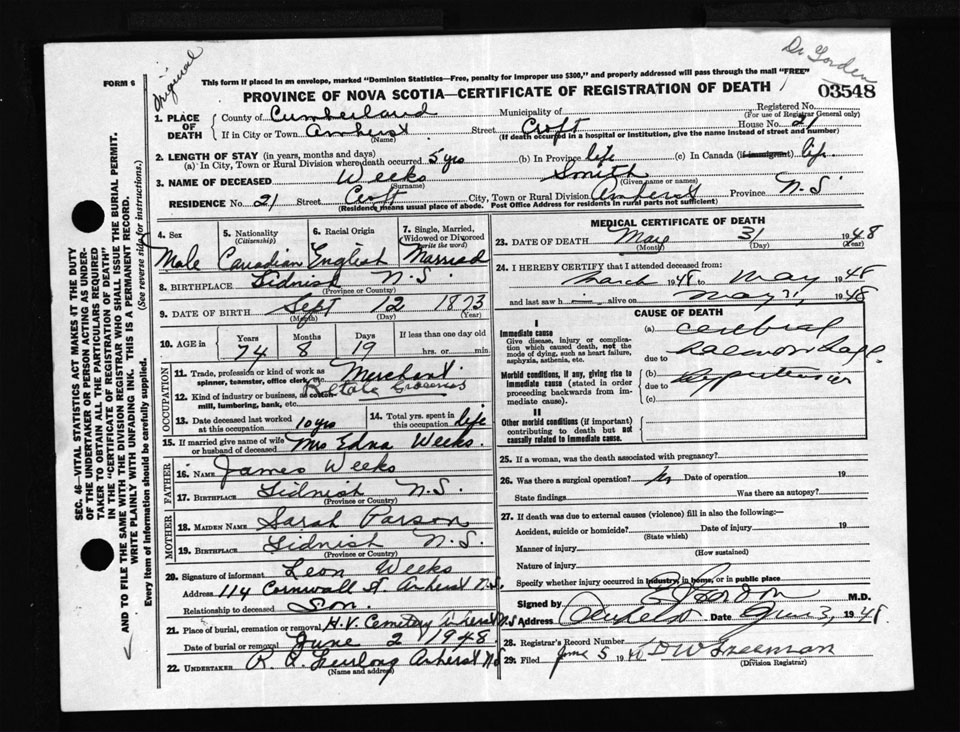 Original
Dr Gordon
FORM 8
This form if placed in an envelope, marked "Dominion Statistics—Free, penalty for improper use $300," and properly addressed will pass through the mail "FREE"
PROVINCE OF NOVA SCOTIA—CERTIFICATE OF REGISTRATION OF DEATH
03548
SEC. 46—VITAL STATISTICS ACT MAKES IT THE DUTY
OF THE UNDERTAKER OR PERSON ACTING AS UNDER-
TAKER TO OBTAIN ALL THE PARTICULARS REQUIRED
IN THE "CERTIFICATE OF REGISTRATION OF DEATH"
AND TO FILE THE SAME WITH THE DIVISION REGISTRAR WHO SHALL ISSUE THE BURIAL PERMIT.
WRITE PLAINLY WITH UNFADING INK. THIS IS A PERMANENT RECORD.
Every item of information should be carefully supplied. (See reverse side for instructions.)
1. PLACE OF DEATH
County of Cumberland Municipality of Registered No.
(For use of Registrar General only)
If in City or Town Amherst Street Croft House No. 21
(Name) (If death occurred in a hospital or institution, give the name instead of street and number)
2. LENGTH OF STAY (in years, months and days)
(a) In City, Town or Rural Division where death occurred 5 yrs (b) In Province life (c) In Canada (if immigrant) life
3. NAME OF DECEASED Weeks Smith
(Surname) (Given name or names)
RESIDENCE No. 21 Street Croft City, Town or Rural Division Amherst Province N.S
(Residence means usual place of abode. Post Office Address for residents in rural parts not sufficient)
4. Sex
Male
5. Nationality
(Citizenship)
Canadian
6. Racial Origin
English
7. Single, Married,
Widowed or Divorced
(write the word)
Married
8. BIRTHPLACE Tidnish N.S.
(Province or Country)
9. DATE OF BIRTH Sept 12 1873
(Month) (Day) (Year)
10. AGE in Years Months Days If less than one day old
74 8 19 hrs. or min.
OCCUPATION
11. Trade, profession or kind of work as
spinner, teamster, office clerk, etc. Merchant
12. Kind of industry or business, as cotton
mill, lumbering, bank, etc. Retail Groceries
13. Date deceased last worked
at this occupation 10 yrs
14. Total yrs. spent in
this occupation life
15. If married give name of wife
or husband of deceased Mrs Edna Weeks.
FATHER
16. NAME James Weeks
17. BIRTHPLACE Tidnish N.S.
(Province or Country)
MOTHER
18. MAIDEN NAME Sarah Parson
19. BIRTHPLACE Tidnish N.S.
(Province or Country)
20. Signature of informant Leon Weeks
Address 114 Cornwall St. Amherst N.S.
Relationship to deceased Son.
21. Place of burial, cremation or removal H.V. Cemetery Amherst N.S
Date of burial or removal June 2 1948
22. UNDERTAKER Amherst N.S
(Name and address)
MEDICAL CERTIFICATE OF DEATH
23. DATE OF DEATH May 31 1948
(Month) (Day) (Year)
24. I HEREBY CERTIFY that I attended deceased from:
March 1948 to May 1948
and last saw h i alive on May 31, 1948
CAUSE OF DEATH
I
Immediate cause
Give disease, injury or complica-
tion which caused death, not the
mode of dying, such as heart failure,
asphyxia, asthenia, etc.
(a) cerebral
haemorrhage
due to
Morbid conditions, if any, giving rise to
immediate cause (stated in order
proceeding backwards from im-
mediate cause).
(b)
due to Hypertension
(c)
II
Other morbid conditions (if important)
contributing to death but not
causally related to immediate cause.
25. If a woman, was the death associated with pregnancy?
26. Was there a surgical operation? No Date of operation 19
State findings Was there an autopsy?
27. If death was due to external causes (violence) fill in also the following:—
Accident, suicide or homicide? Date of injury 19
(State which)
Manner of injury
(How sustained)
Nature of injury
Specify whether injury occurred in industry, in home, or in public place
Signed by Gordon M.D.
Address Amherst Date June 3, 1948
28. Registrar's Record Number
29. Filed June 5 19 D W Freeman
(Division Registrar)